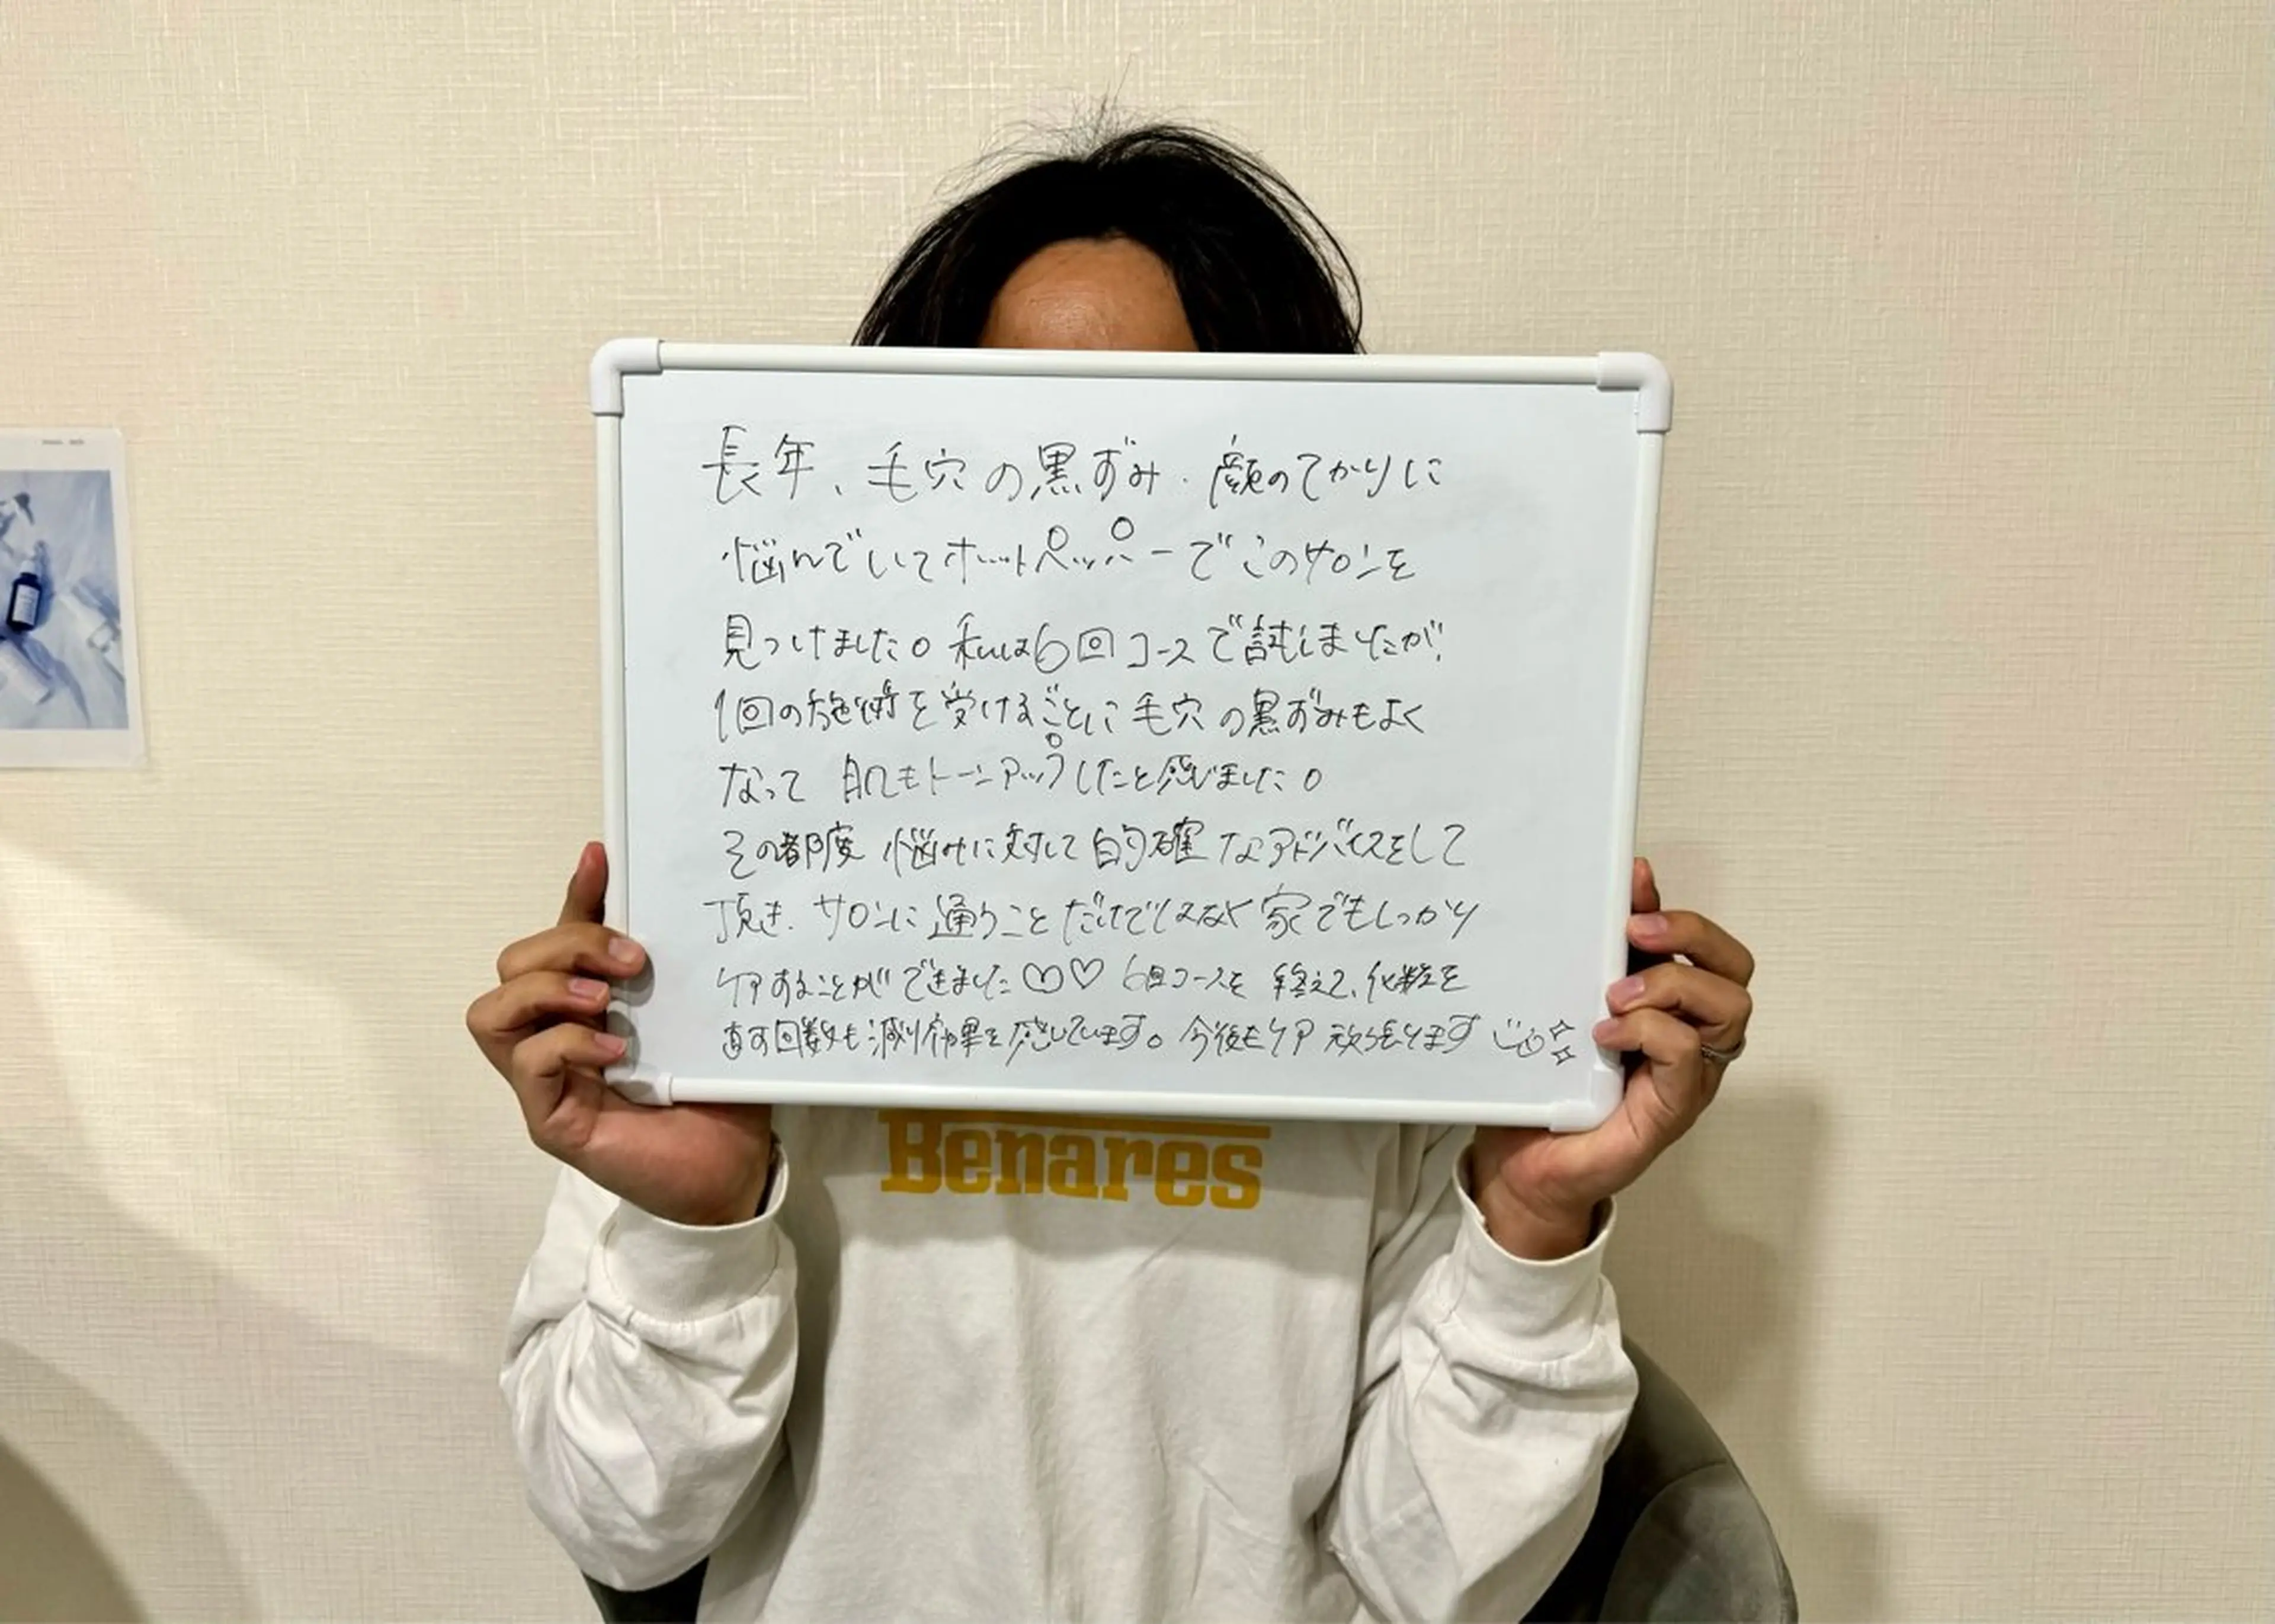 長年、毛穴の黒ずみ・顔のてかりに
悩んでいてホットペッパーでこのサロンを
見つけました。私は6回コースで試しましたが、
1回の施術を受けるごとに毛穴の黒ずみもよく
なって 肌もトーンアップしたと感じました。
その都度 悩みに対して的確なアドバイスをして
頂き、サロンに通うことだけではなく家でもしっかり
ケアすることができました♡♡ 6回コースを 終えて、化粧を
直す回数も減り効果を感じています。今後もケア頑張ります
Benares